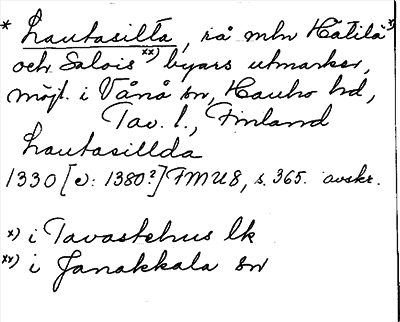 * Lautasilta, rå mln Hätilä x)
och Salois xx) byars utmarker,
möjl. i Vånå sn, Hauho hd,
Tav. l., Finland
Lautasillda
1330 [v: 1380?] FMU 8, s. 365. avskr.
x) i Tavastehus lk
xx) i Janakkala sn